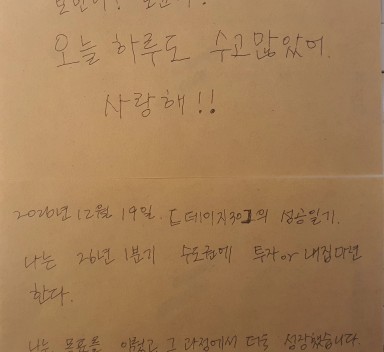 오늘 하루도 수고많았어.
사랑해!!
2026년 12월 19일. [데이지30]의 성승일기.
나는 26년 1분기 수도권에 투자or내집마련
한다.
나는 목표를 이뤘고 그 과정에서 더욱 성장했습니다.